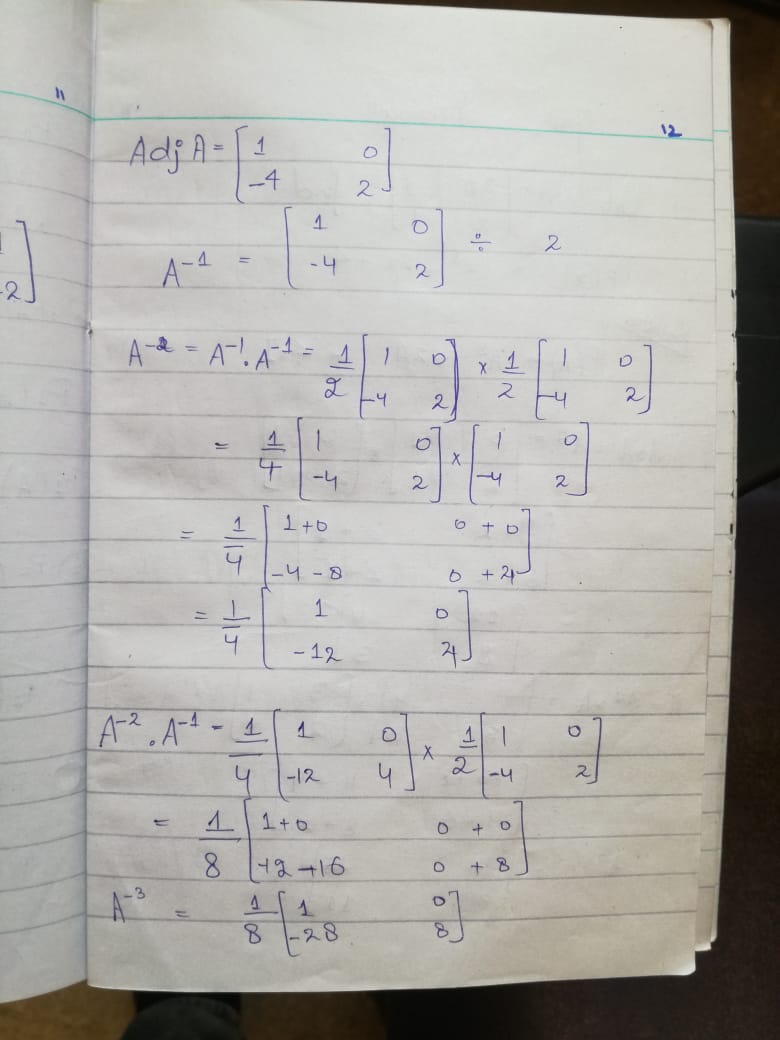 11
12
]
-2
Adj A = [1 0
-4 2]
A⁻¹ = [1 0
-4 2] ÷ 2
A⁻² = A⁻¹. A⁻¹ = 1/2 [1 0
-4 2] × 1/2 [1 0
-4 2]
= 1/4 [1 0
-4 2] × [1 0
-4 2]
= 1/4 [1+0 0 + 0
-4 - 8 0 + 4]
= 1/4 [1 0
-12 4]
A⁻² . A⁻¹ = 1/4 [1 0
-12 4] × 1/2 [1 0
-4 2]
= 1/8 [1+0 0 + 0
-12 -16 0 + 8]
A⁻³ = 1/8 [1 0
-28 8]